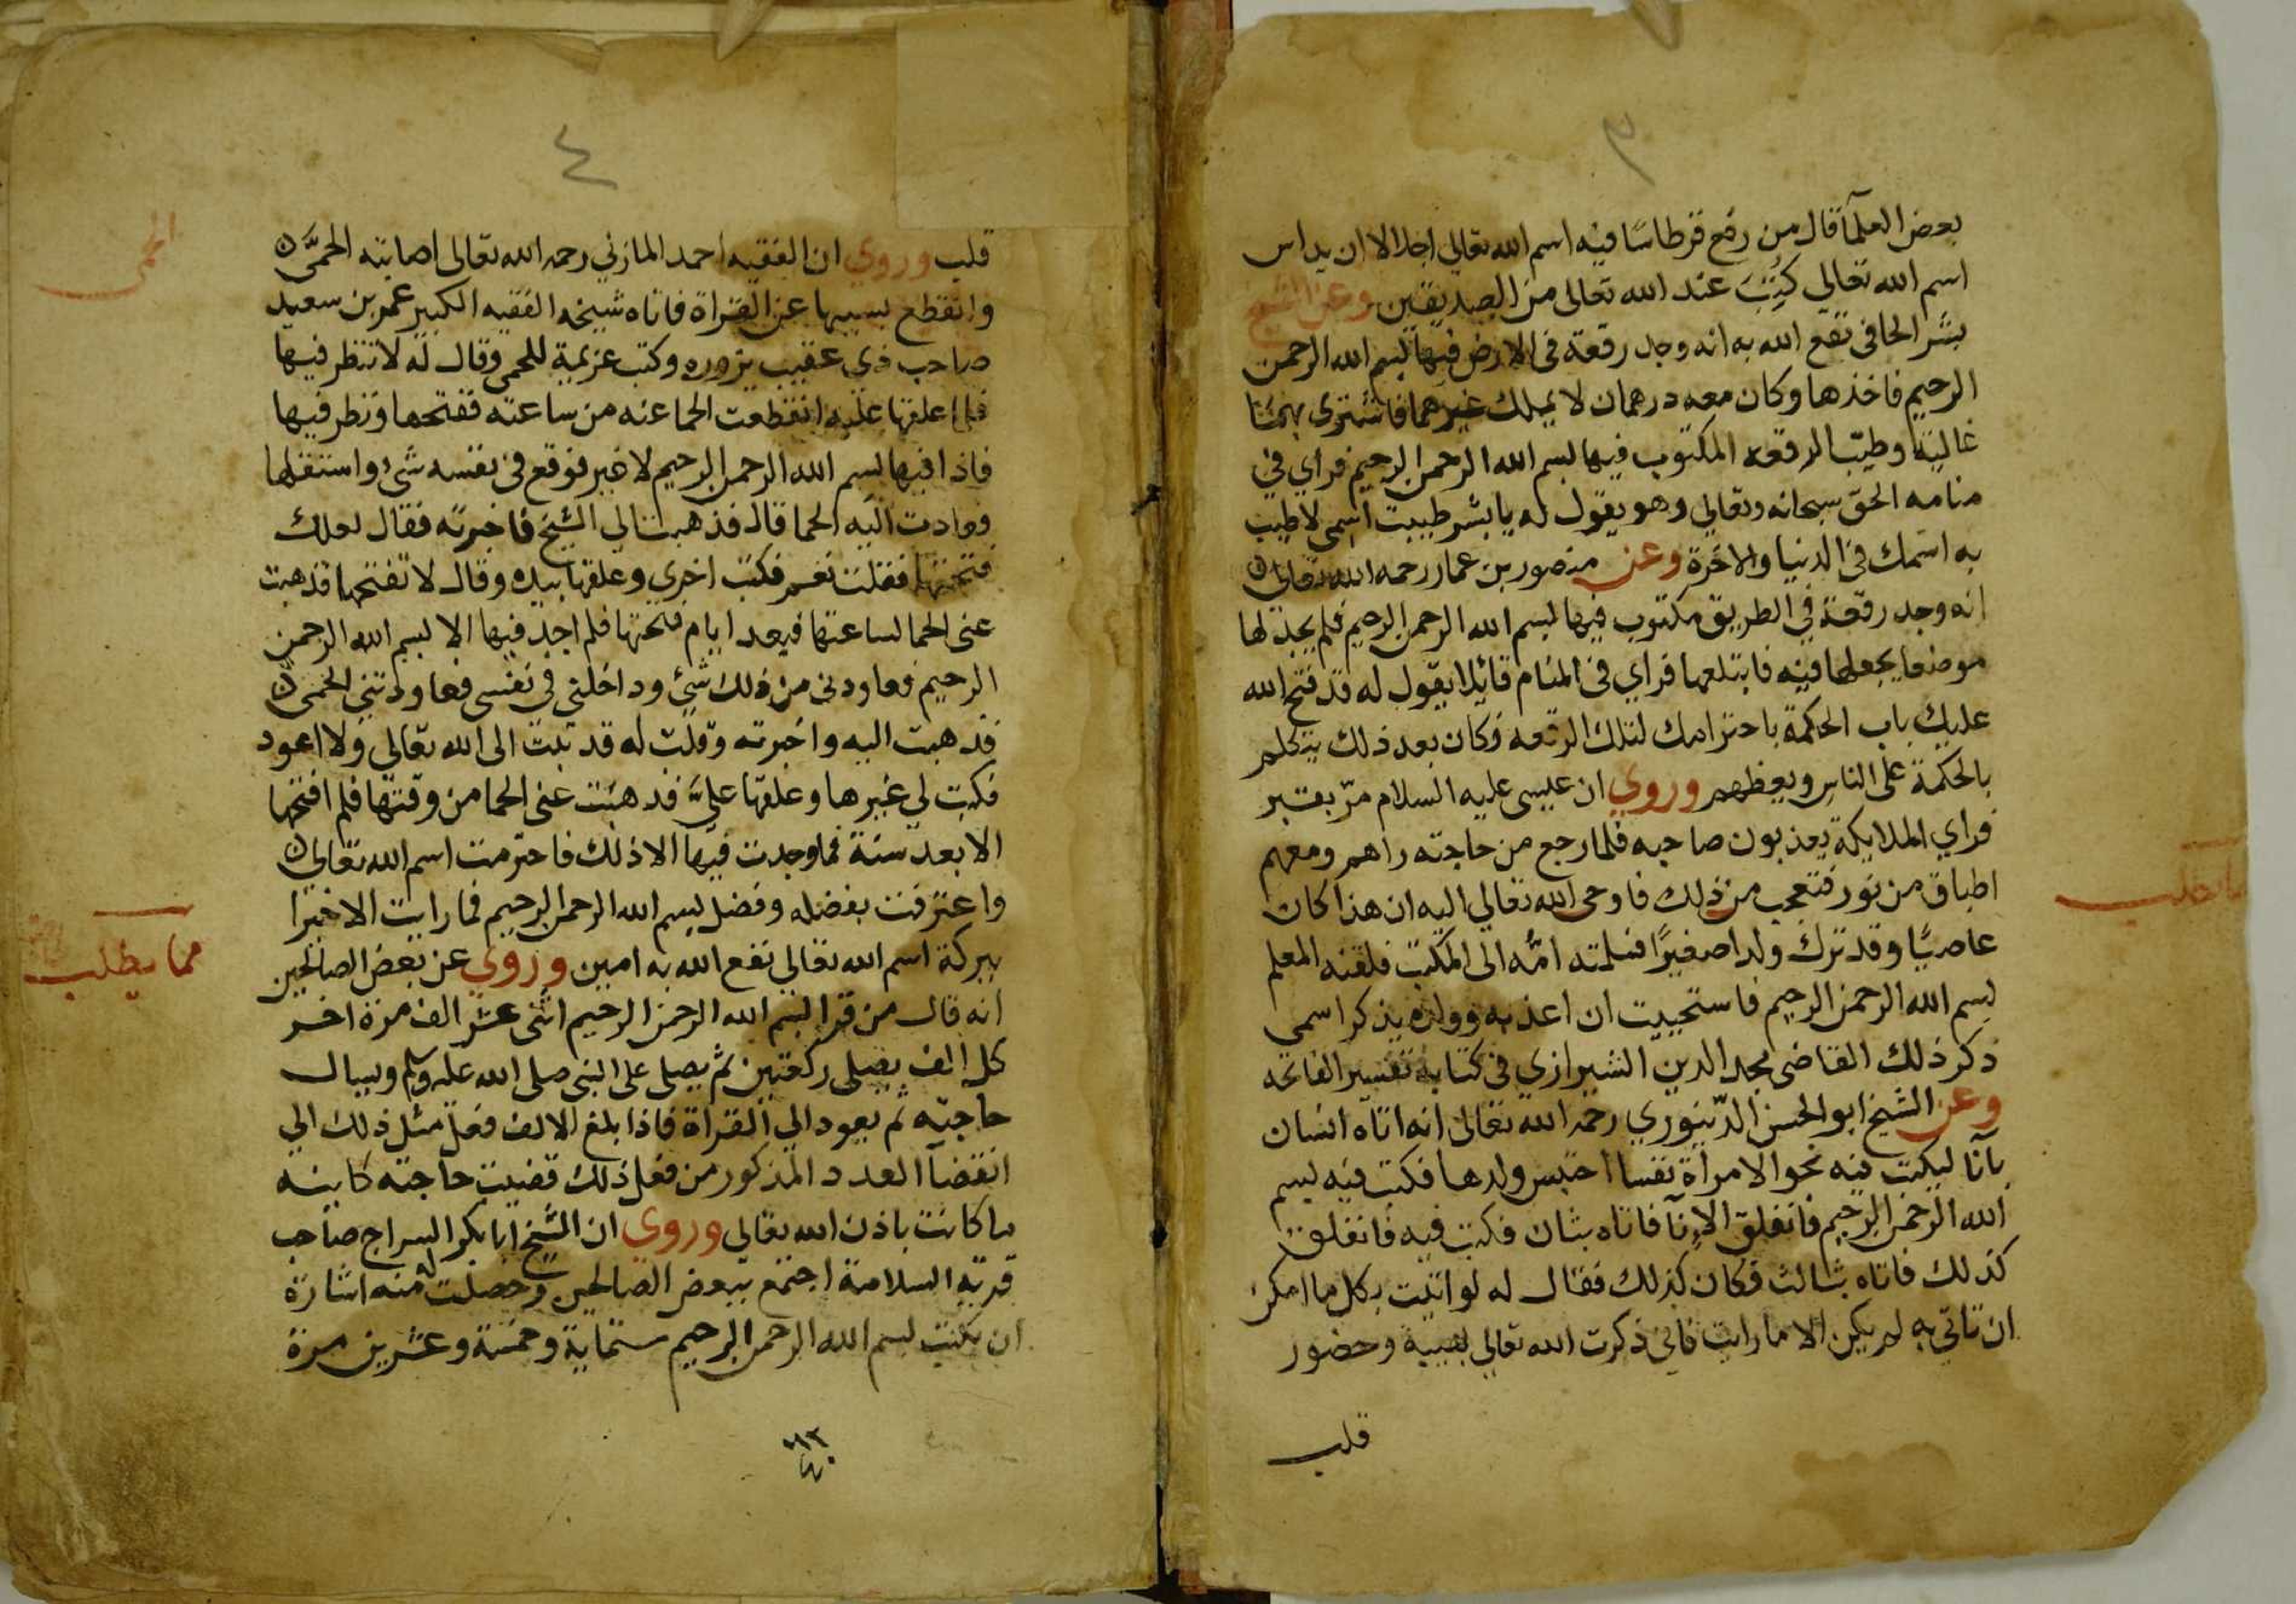 ٣
بعض العلمآ قال من رفع قرطاسًا فيه اسم الله تعالي اجلالا ان يداس
اسم الله تعالي كُتِبَ عند الله تعالى من الصديقين وعن الشيخ
بشر الحافي نفع الله به انه وجد رقعة في الارض فيها بسم الله الرحمن
الرحيم فاخذها وكان معه درهمان لا يملك غيرهما فاشترى بهما
غالية وطيّب الرقعه المكتوب فيها بسم الله الرحمن الرحيم فراي في
منامه الحق سبحانه وتعالي وهو يقول له يا بشر طيبت اسمي لاطيب
به اسمك في الدنيا والاخرة وعن منصور بن عمار رحمه الله تعالى
انه وجد رقعة في الطريق مكتوب فيها بسم الله الرحمن الرحيم فلم يجد لها
موضعا يجعلها فيه فابتلعها فراي في المنام قائلا يقول له قد فتح الله
عليك باب الحكمة باحترامك لتلك الرقعه وكان بعد ذلك يتكلم
بالحكمة على الناس ويعظهم وروي ان عيسى عليه السلام مرّ بقبر
فراي الملايكة يعذبون صاحبه فلما رجع من حاجته راهم ومعهم
اطباق من نور فتعجب من ذلك فاوحى الله تعالي اليه ان هذا كان
عاصيًا وقد ترك ولدا صغيرًا فسلمته امُّه الى المكتب فلقنه المعلم
بسم الله الرحمن الرحيم فاستحييت ان اعذبه وولده يذكر اسمي
ذكر ذلك القاضي مجد الدين الشيرازي في كتابه تفسير الفاتحه
وعن الشيخ ابو الحسن الدّينوري رحمه الله تعالى انه اتاه انسان
بآنا ليكتب فيه نحوا لامراة نفسا احتبس ولدها فكتب فيه بسم
الله الرحمن الرحيم فانفلق الاِنآ فاتاه بثان فكتب فيه فانفلق
كذلك فاتاه بثالث فكان كذلك فقال له لو اتيت بكل ما امكن
ان تاتي به لم يكن الا ما رايت فاني ذكرت الله تعالي بهيبة وحضور
قلب
مما يطلب
٤
قلب وروي ان الفقيه احمد المازني رحمه الله تعالى اصابته الحمَّى
وانقطع بسببها عن القراة فاتاه شيخه الفقيه الكبير عمر بن سعيد
صاحب ذي عقيب يزوره وكتب عزيمة للحمى وقال له لا تنظر فيها
فلما علقها عليه انقطعت الحما عنه من ساعته ففتحها ونظر فيها
فاذا فيها بسم الله الرحمن الرحيم لا غير فوقع في نفسه شئ واستقلها
فعادت اليه الحما قال فذهبت الي الشيخ فاخبرته فقال لعلك
فتحتها فقلت نعم فكتب اخري وعلقها بيده وقال لا تفتحها فذهبت
عني الحما لساعتها فبعد ايام فتحتها فلم اجد فيها الا بسم الله الرحمن
الرحيم فعاودني من ذلك شئ وداخلني في نفسي فعاودتني الحمى
فذهبت اليه واخبرته وقلت له قد تبت الى الله تعالي ولا اعود
فكتب لي غيرها وعلقها عليَّ فذهبت عني الحما من وقتها فلم افتحها
الا بعد سنة فما وجدت فيها الا ذلك فاحترمت اسم الله تعالى
واعترفت بفضله وفضل بسم الله الرحمن الرحيم فما رايت الا خيرا
ببركة اسم الله تعالي نفع الله به امين وروي عن بعض الصالحين
انه قال من قرا بسم الله الرحمن الرحيم اثنى عشر الف مرة اخر
كل الف يصلى ركعتين ثم يصلى على النبي صلى الله عليه وسلم ويسال
حاجته ثم يعود الي القراة فاذا بلغ الالف فعل مثل ذلك الي
انقضآ العدد المذكور من فعل ذلك قضيت حاجته كاينه
ما كانت باذن الله تعالي وروي ان الشيخ ابا بكر السراج صاحب
قرية السلامة اجتمع ببعض الصالحين وحصلت له منه اشارة
ان يكتب بسم الله الرحمن الرحيم ستماية وخمسة وعشرين مرة
الحمى
مما يطلب